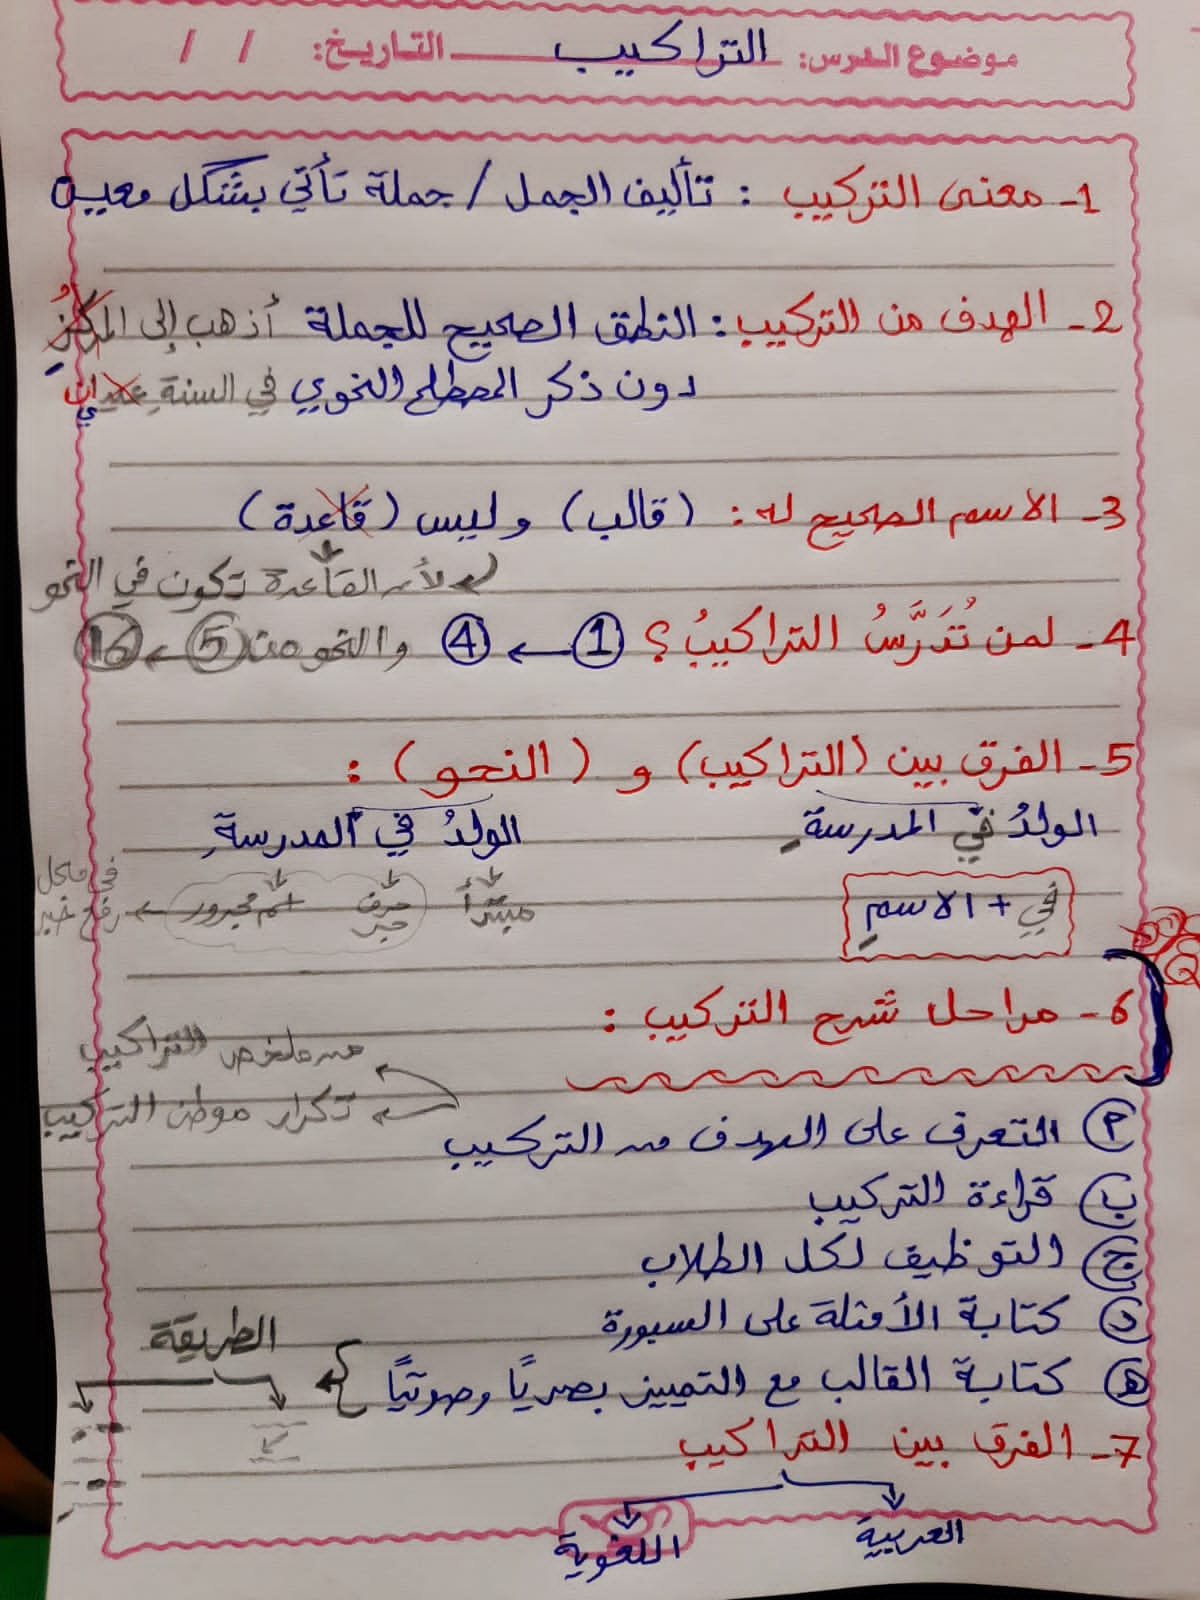 موضوع الدرس: التراكيب التاريخ: / /
1- معنى التركيب : تأليف الجمل / جملة تأتي بشكل معين
2- الهدف من التركيب : النطق الصحيح للجملة أذهب إلى المركزُ
دون ذكر المصطلح النحوي في السنةِ
3- الاسم الصحيح له : (قالب) وليس (قاعدة)
لأن القاعدة تكون في النحو
4- لمن تُدَرَّسُ التراكيبُ ؟ 1 ← 4 والنحو من 5 ← 16
5- الفرق بين (التراكيب) و (النحو) :
الولدُ في المدرسةِ الولدُ في المدرسةِ
في + الاسمِ مبتدأ حرف جر اسم مجرور ← في محل رفع خبر
6- مراحل شرح التركيب :
من ملخص التراكيب
تكرار موطن التركيب
أ التعرف على الهدف من التركيب
ب قراءة التركيب
ج التوظيف لكل الطلاب
د كتابة الأمثلة على السبورة
الطريقة
هـ كتابة القالب مع التمييز بصريًا وصوتيًا
7- الفرق بين التراكيب
العربية اللغوية